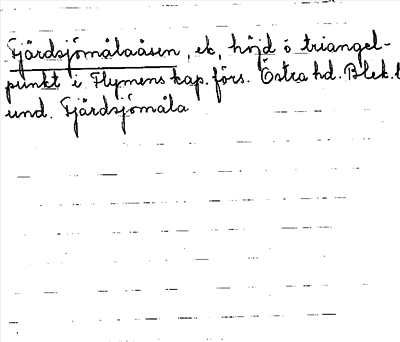 Fjärdsjömålaåsen, ek, höjd ö triangel-
punkt i Flymens kap. förs. Östra hd. Blek. l
und. Fjärdsjömåla